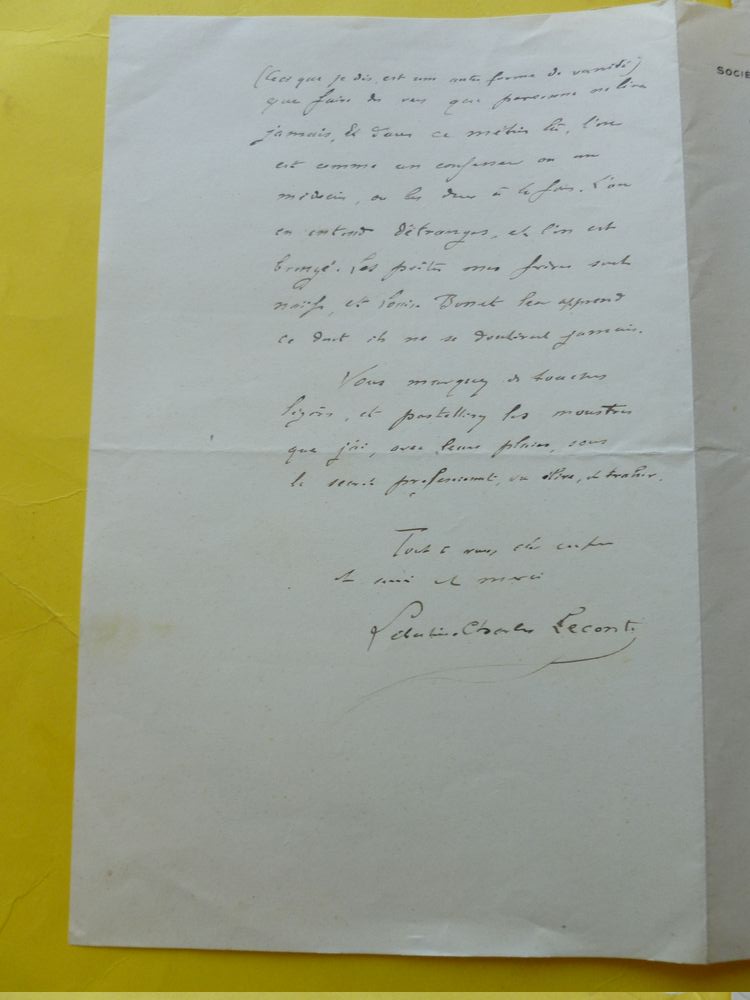 (Ceci que je dis, est une autre forme de vanité)
que faire des vers que personne ne lira
jamais. Et dans ce métier là, l'on
est comme un confesseur ou un
médecin, ou les deux à la fois. L'on
en entend d'étranges, et l'on est
bronzé. Les poètes mes frères sont
naïfs, et Bonet leur apprend
ce dont ils ne se doutèrent jamais.
Vous marquez de touches
légères, et pastellisez les monstres
que j'ai, avec leurs plaies, sous
le secret professionnel,
Tout à vous, cher
et ami et merci
Sébastien-Charles Leconte
SOCIÉ